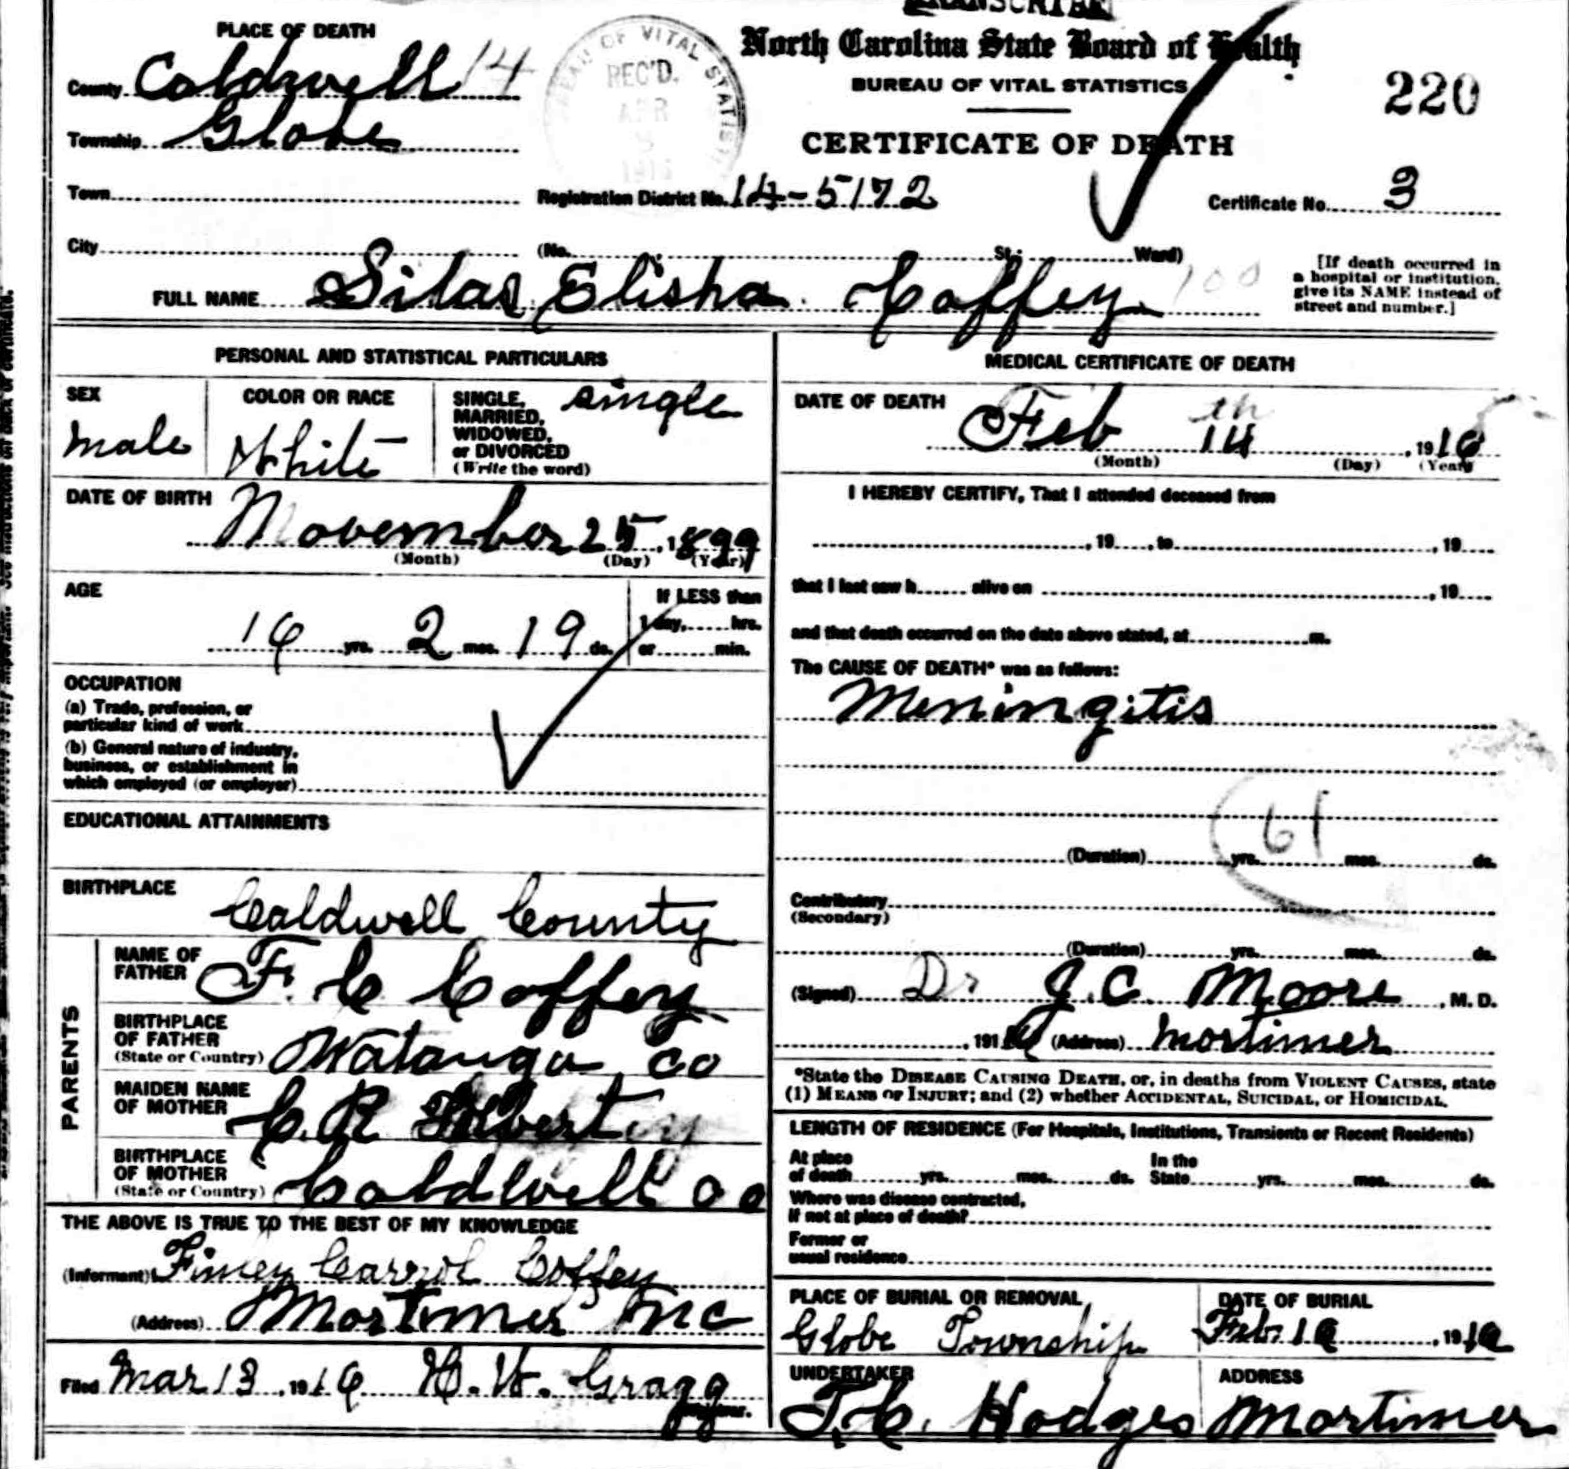 PLACE OF DEATH
County Caldwell 14
Township Globe
Town
City
BUREAU OF VITAL STATISTICS
REC'D.
APR
1916
North Carolina State Board of Health
BUREAU OF VITAL STATISTICS
CERTIFICATE OF DEATH
220
Registration District No. 14-5172
Certificate No. 3
(No. St.; Ward)
[If death occurred in
a hospital or institution,
give its NAME instead of
street and number.]
FULL NAME Silas Elisha Coffey 100
PERSONAL AND STATISTICAL PARTICULARS
SEX
Male
COLOR OR RACE
White
SINGLE,
MARRIED,
WIDOWED,
or DIVORCED
(Write the word)
single
DATE OF BIRTH
November 25, 1899
(Month) (Day) (Year)
AGE
16 yrs. 2 mos. 19 ds.
If LESS than
1 day, hrs.
or min.
OCCUPATION
(a) Trade, profession, or
particular kind of work
(b) General nature of industry,
business, or establishment in
which employed (or employer)
EDUCATIONAL ATTAINMENTS
BIRTHPLACE
Caldwell County
PARENTS
NAME OF
FATHER
F. C Coffey
BIRTHPLACE
OF FATHER
(State or Country)
Watauga Co
MAIDEN NAME
OF MOTHER
C. R
BIRTHPLACE
OF MOTHER
(State or Country)
Caldwell Co
THE ABOVE IS TRUE TO THE BEST OF MY KNOWLEDGE
(Informant) Finley Carrol Coffey
(Address) Mortimer NC
Filed Mar 13, 1916 H. W. Gragg
MEDICAL CERTIFICATE OF DEATH
DATE OF DEATH
Feb 14th, 1916
(Month) (Day) (Year)
I HEREBY CERTIFY, That I attended deceased from
, 19 , to , 19
that I last saw h alive on , 19
and that death occurred on the date above stated, at m.
The CAUSE OF DEATH* was as follows:
Meningitis
61
(Duration) yrs. mos. ds.
Contributory
(Secondary)
(Duration) yrs. mos. ds.
(Signed) Dr J. C. Moore, M. D.
, 1916 (Address) Mortimer
*State the DISEASE CAUSING DEATH, or, in deaths from VIOLENT CAUSES, state
(1) MEANS OF INJURY; and (2) whether ACCIDENTAL, SUICIDAL, OR HOMICIDAL.
LENGTH OF RESIDENCE (For Hospitals, Institutions, Transients or Recent Residents)
At place
of death yrs. mos. ds.
In the
State yrs. mos. ds.
Where was disease contracted,
if not at place of death?
Former or
usual residence
PLACE OF BURIAL OR REMOVAL
Globe Township
DATE OF BURIAL
Feb. 16, 1916
UNDERTAKER
T. C. Hodges
ADDRESS
Mortimer